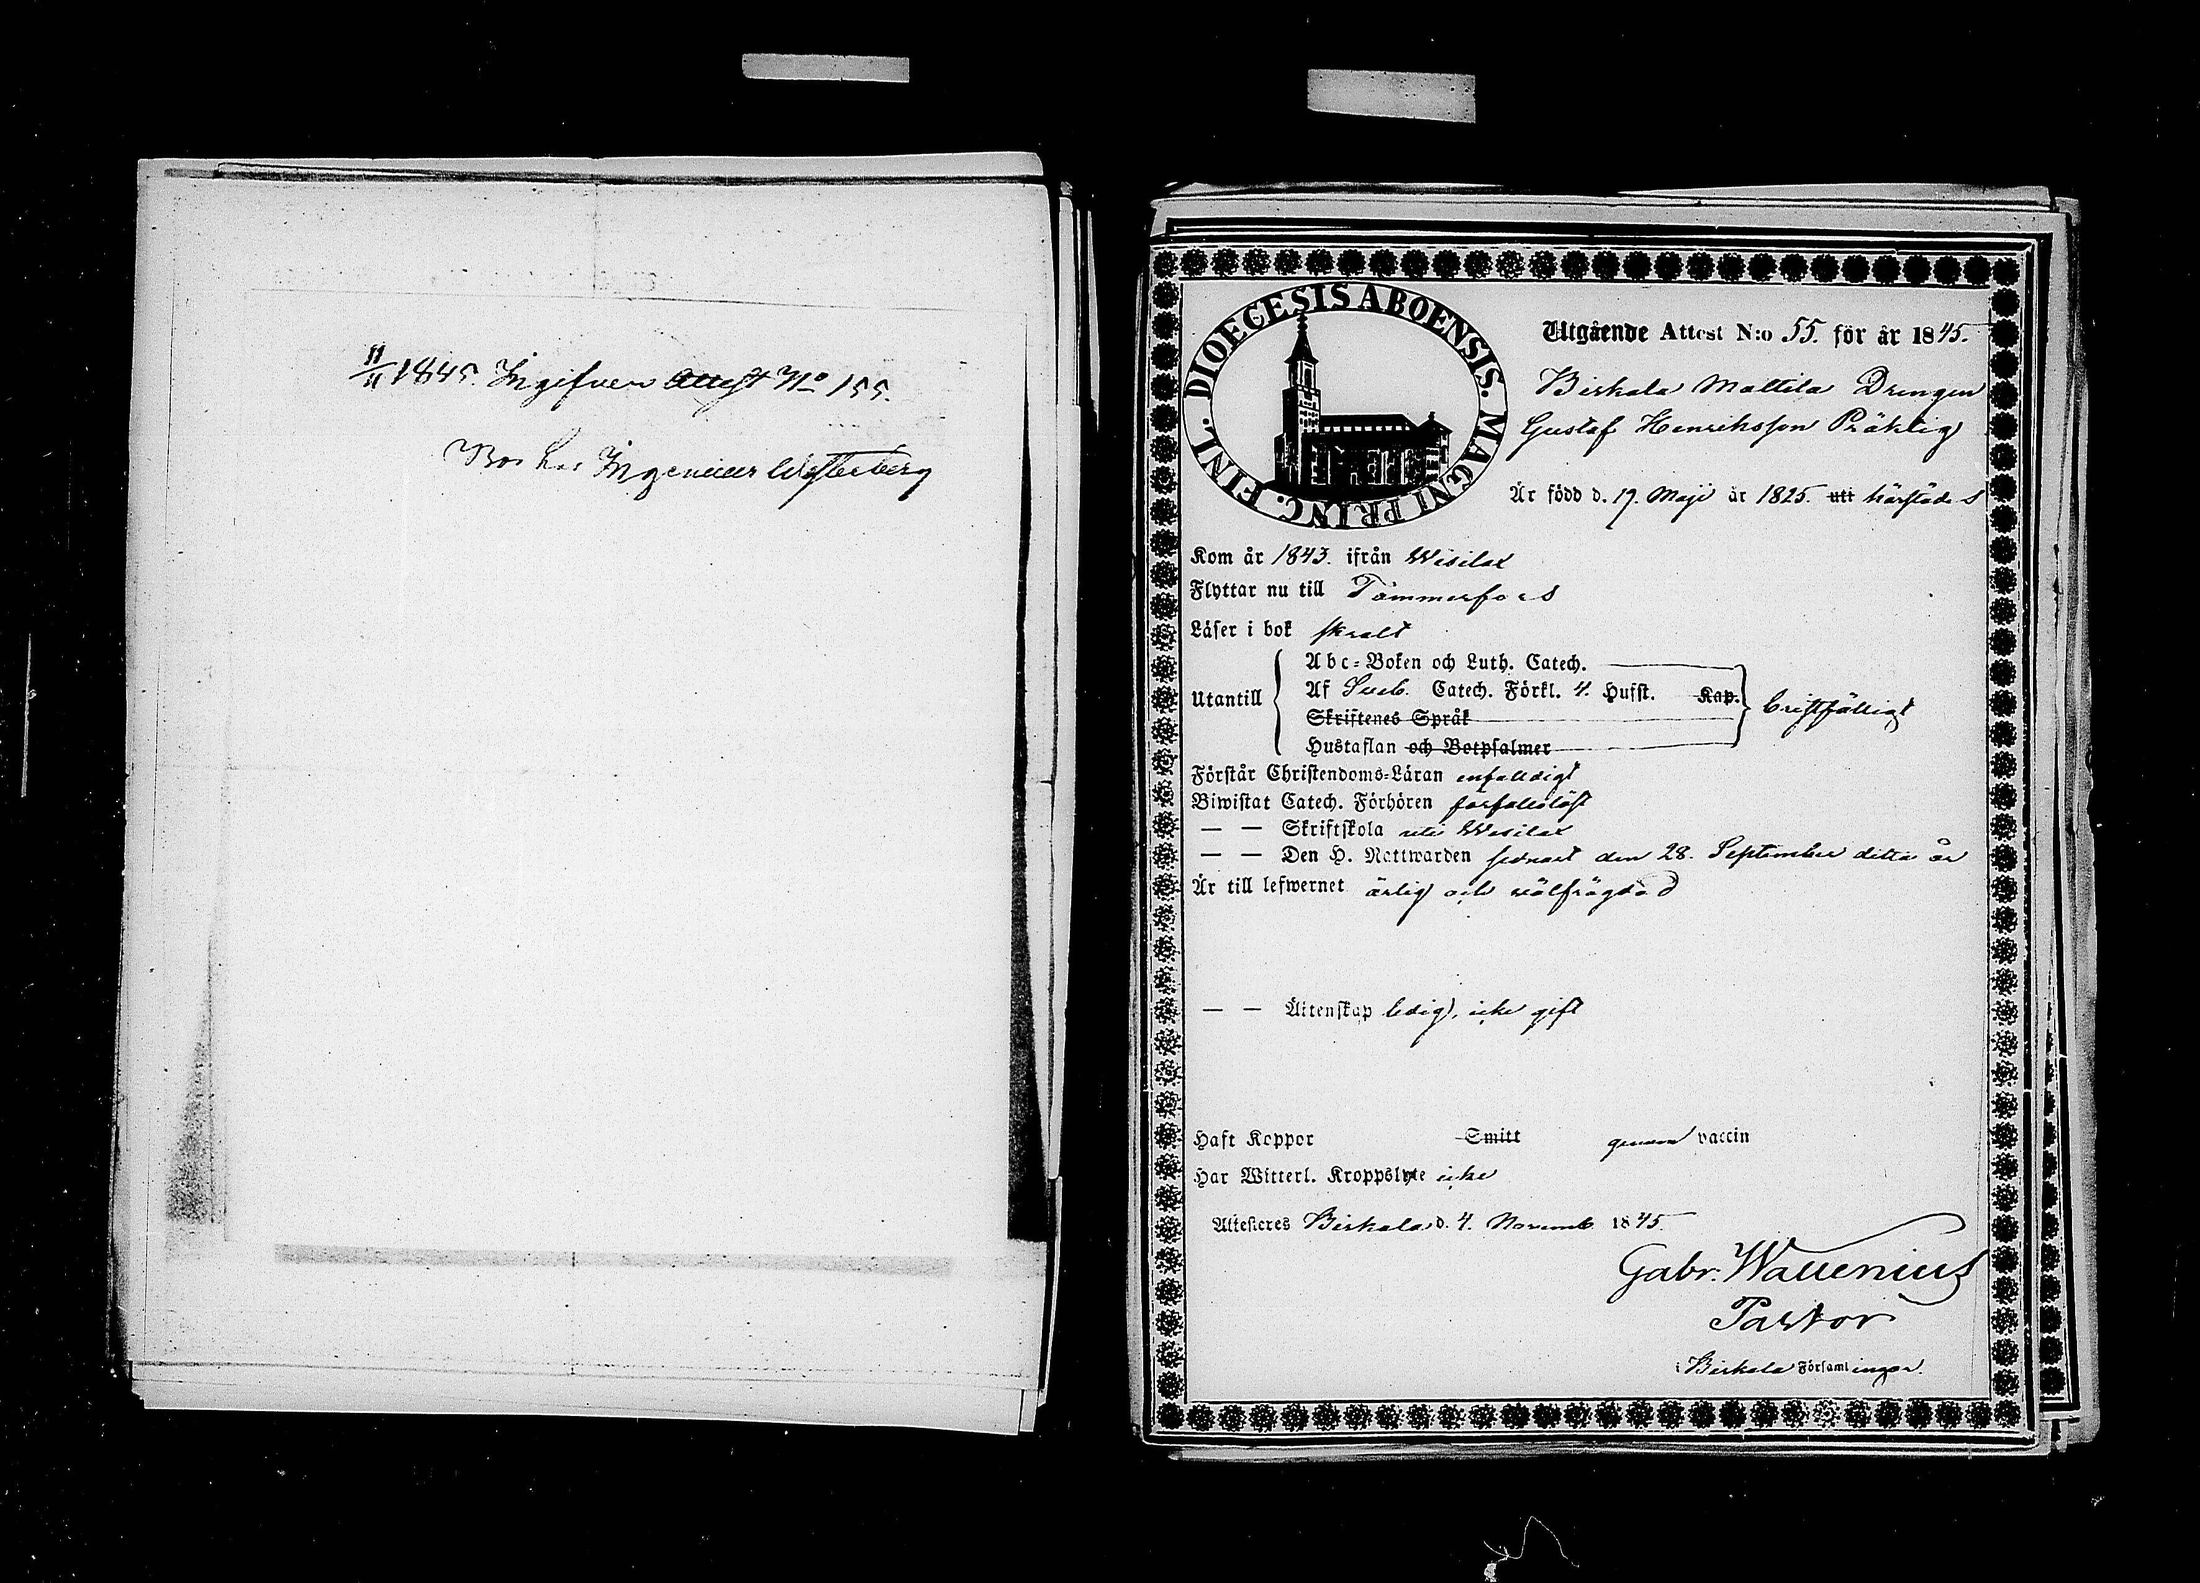 11/11 1845. Ingifven Attest No 155.
Bor hos Ingenieur Westerberg
DIOECESIS ABOENSIS. MAGNI PRINC. FINL.
Utgående Attest N:o 55. för år 1845.
Birkala Mattila Drengen
Gustaf Henriksson Präktig
Är född d. 17. Maji år 1825. uti härstädes
Kom år 1843. ifrån Wesilax
Flyttar nu till Tammerfors
Läser i bok skralt
Abc-Boken och Luth. Catech.
Utantill Af Sveb. Catech. Förkl. 4. Hufst. Kap. bristfälligt
Skriftenes Språk
Hustaflan och Botpsalmer
Förstår Christendoms-Läran enfaldigt
Biwistat Catech. Förhören förfallslöst
— — Skriftskola uti Wesilax
— — Den H. Nattwarden sednast den 28. September detta år
Är till lefwernet ärlig och välfrägdad
— — Äktenskap ledig, icke gift
Haft Koppor Smitt genom vaccin
Har Witterl. Kroppslyte icke
Attesteres Birkala d. 4. Novemb. 1845.
Gabr. Wallenius
Pastor
i Birkala Församlingar.